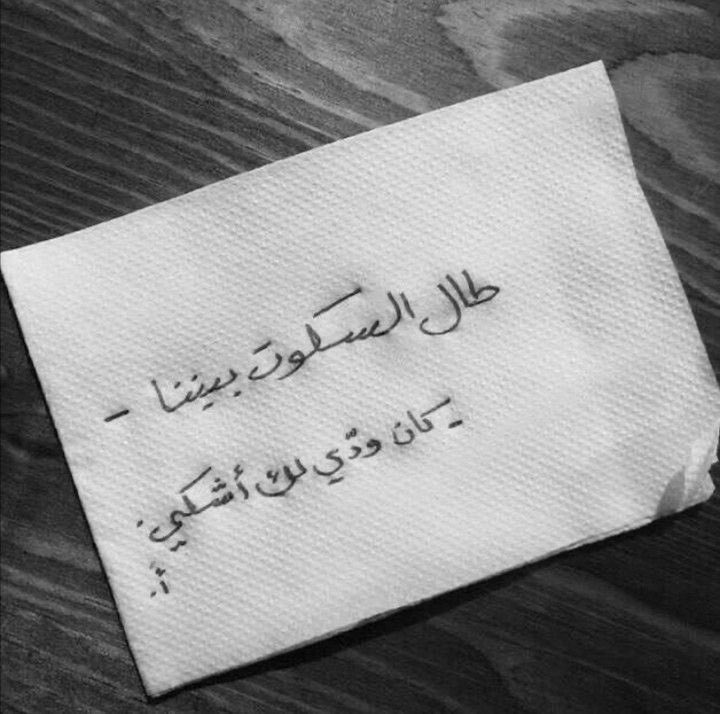 طال السكوت بيننا -
- كان ودّي لك أشكي.
أ.